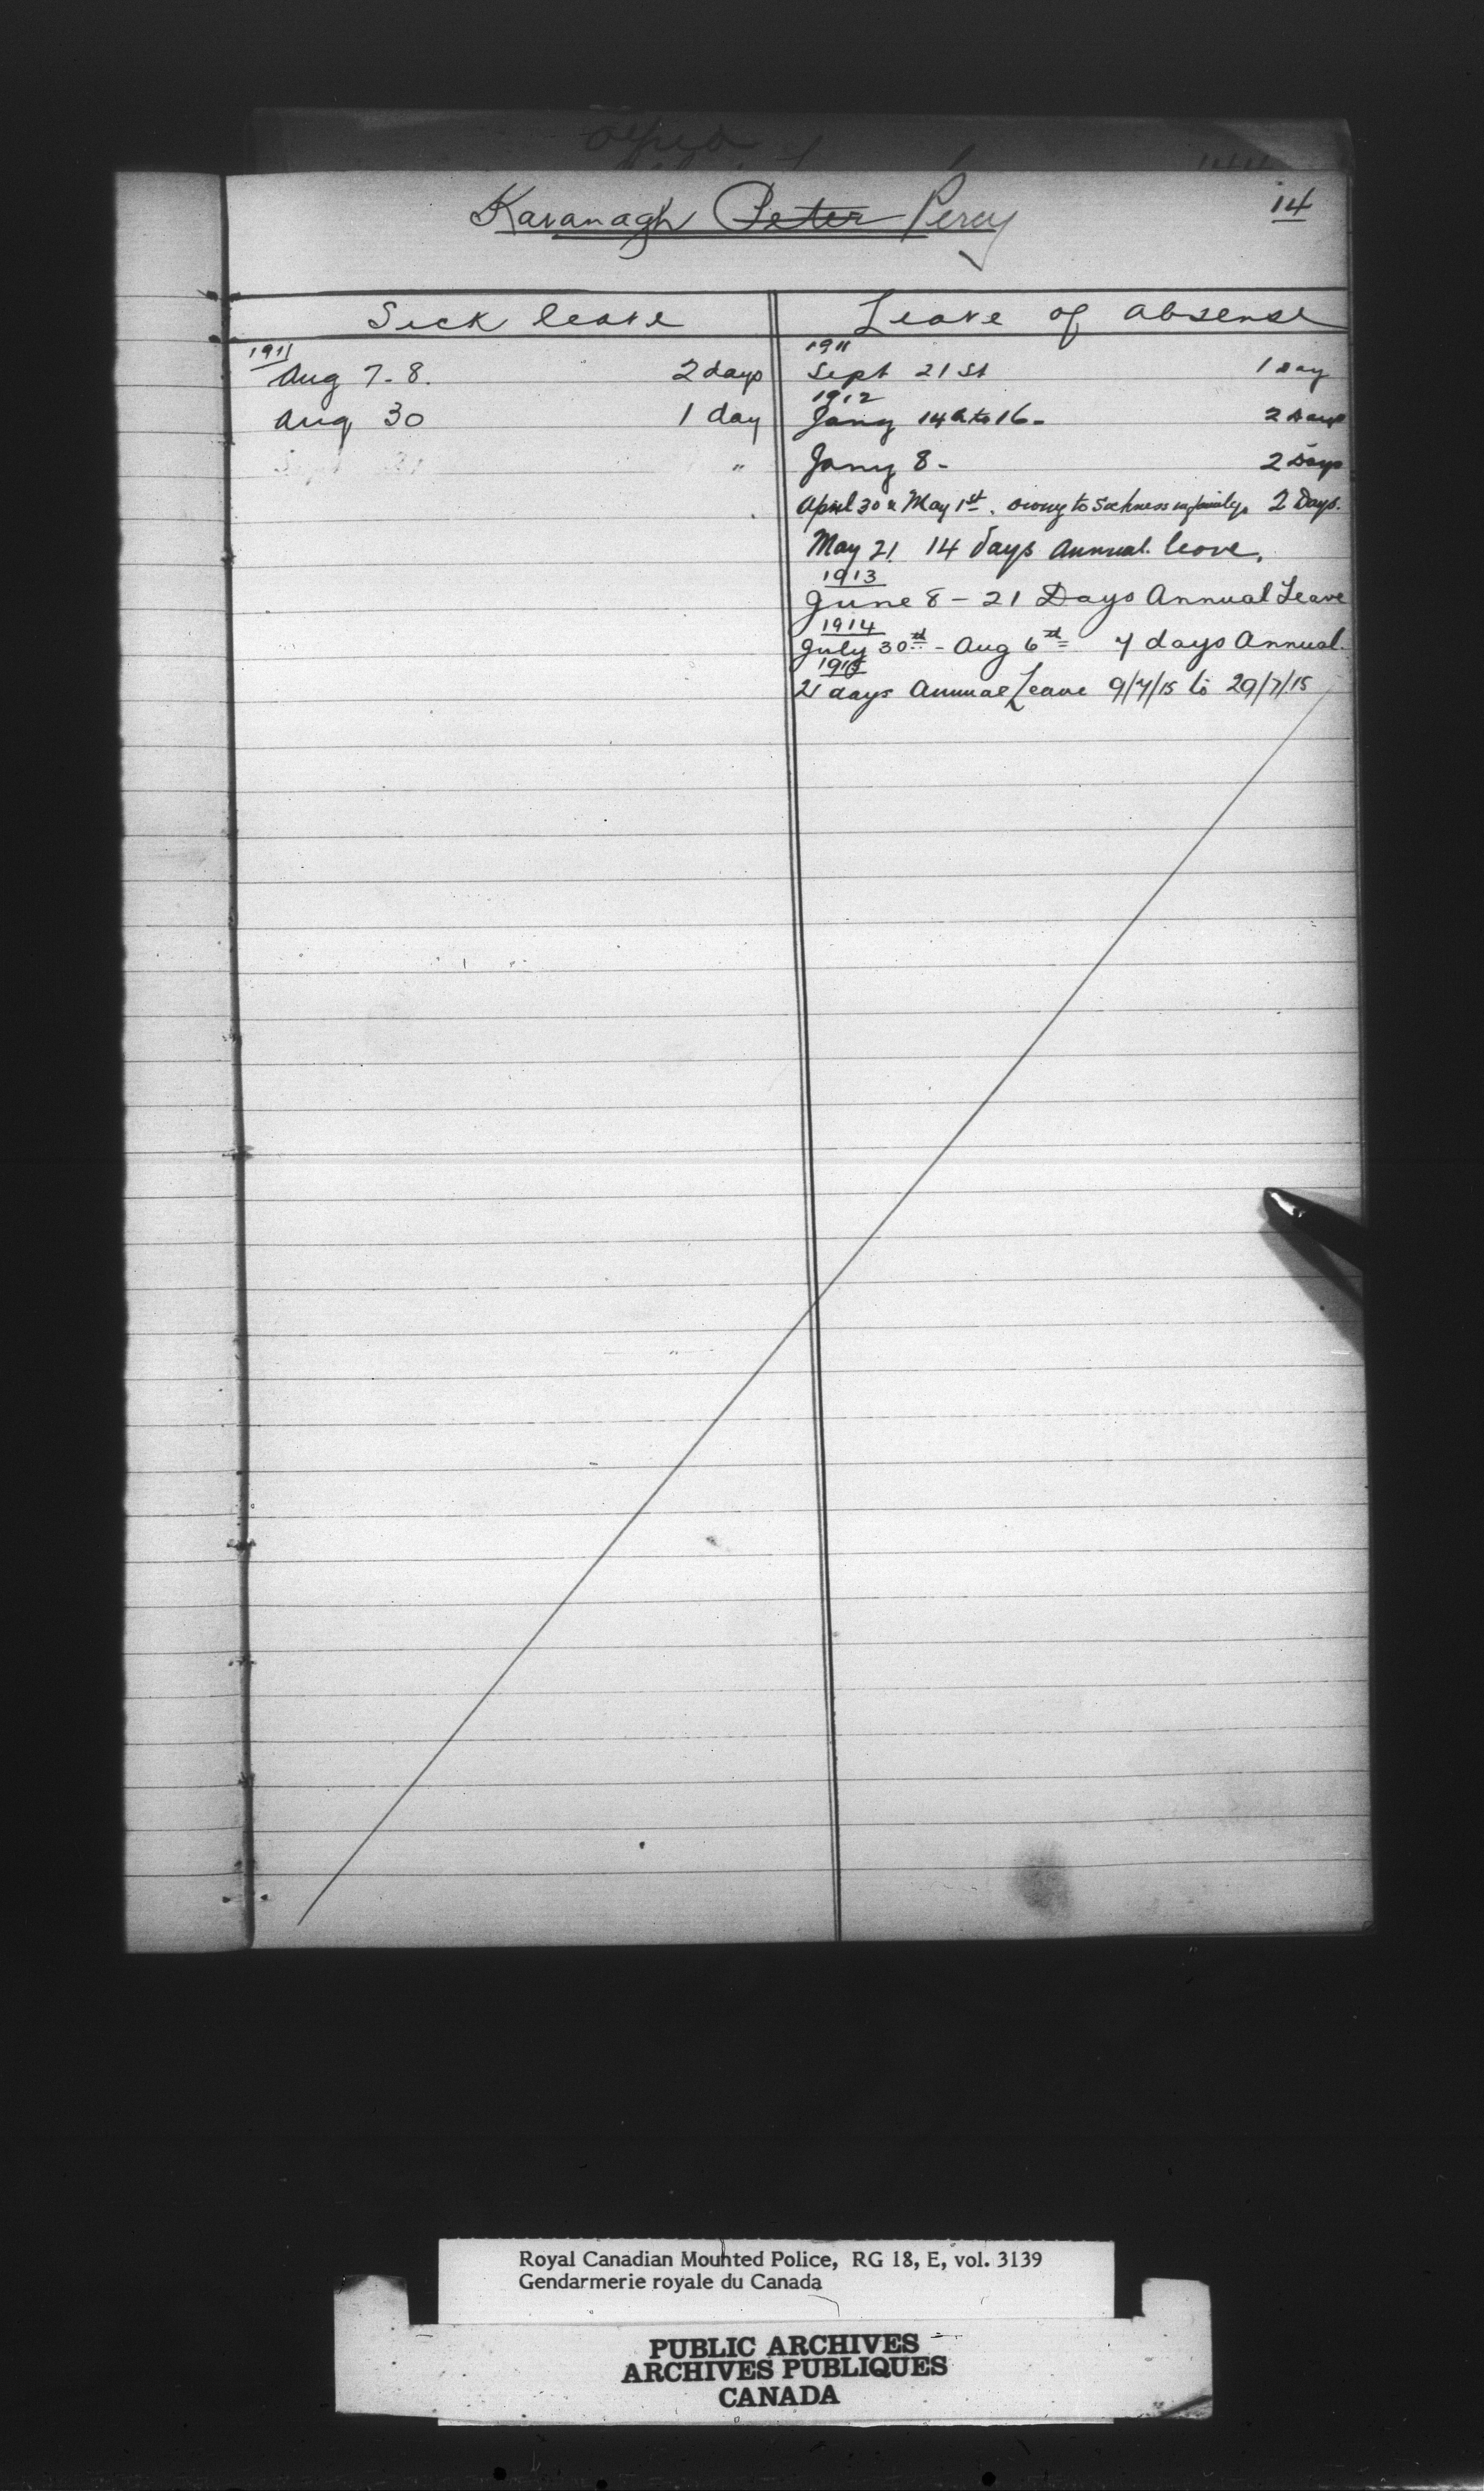 Kavanagh Peter Percy
14
Sick leave
Leave of absense
1911
Aug 7-8. 2 days
Aug 30 1 day
"
1911
Sept 21st 1 Day
1912
Jany 14 to 16- 2 Days
Jany 8- 2 Days
April 30 & May 1st. owing to Sickness in family. 2 Days.
May 21. 14 days Annual leave.
1913
June 8 - 21 Days Annual Leave
1914
July 30th - Aug 6th 7 days Annual.
1915
21 days Annual Leave 9/7/15 to 29/7/15
Royal Canadian Mounted Police, RG 18, E, vol. 3139
Gendarmerie royale du Canada
PUBLIC ARCHIVES
ARCHIVES PUBLIQUES
CANADA